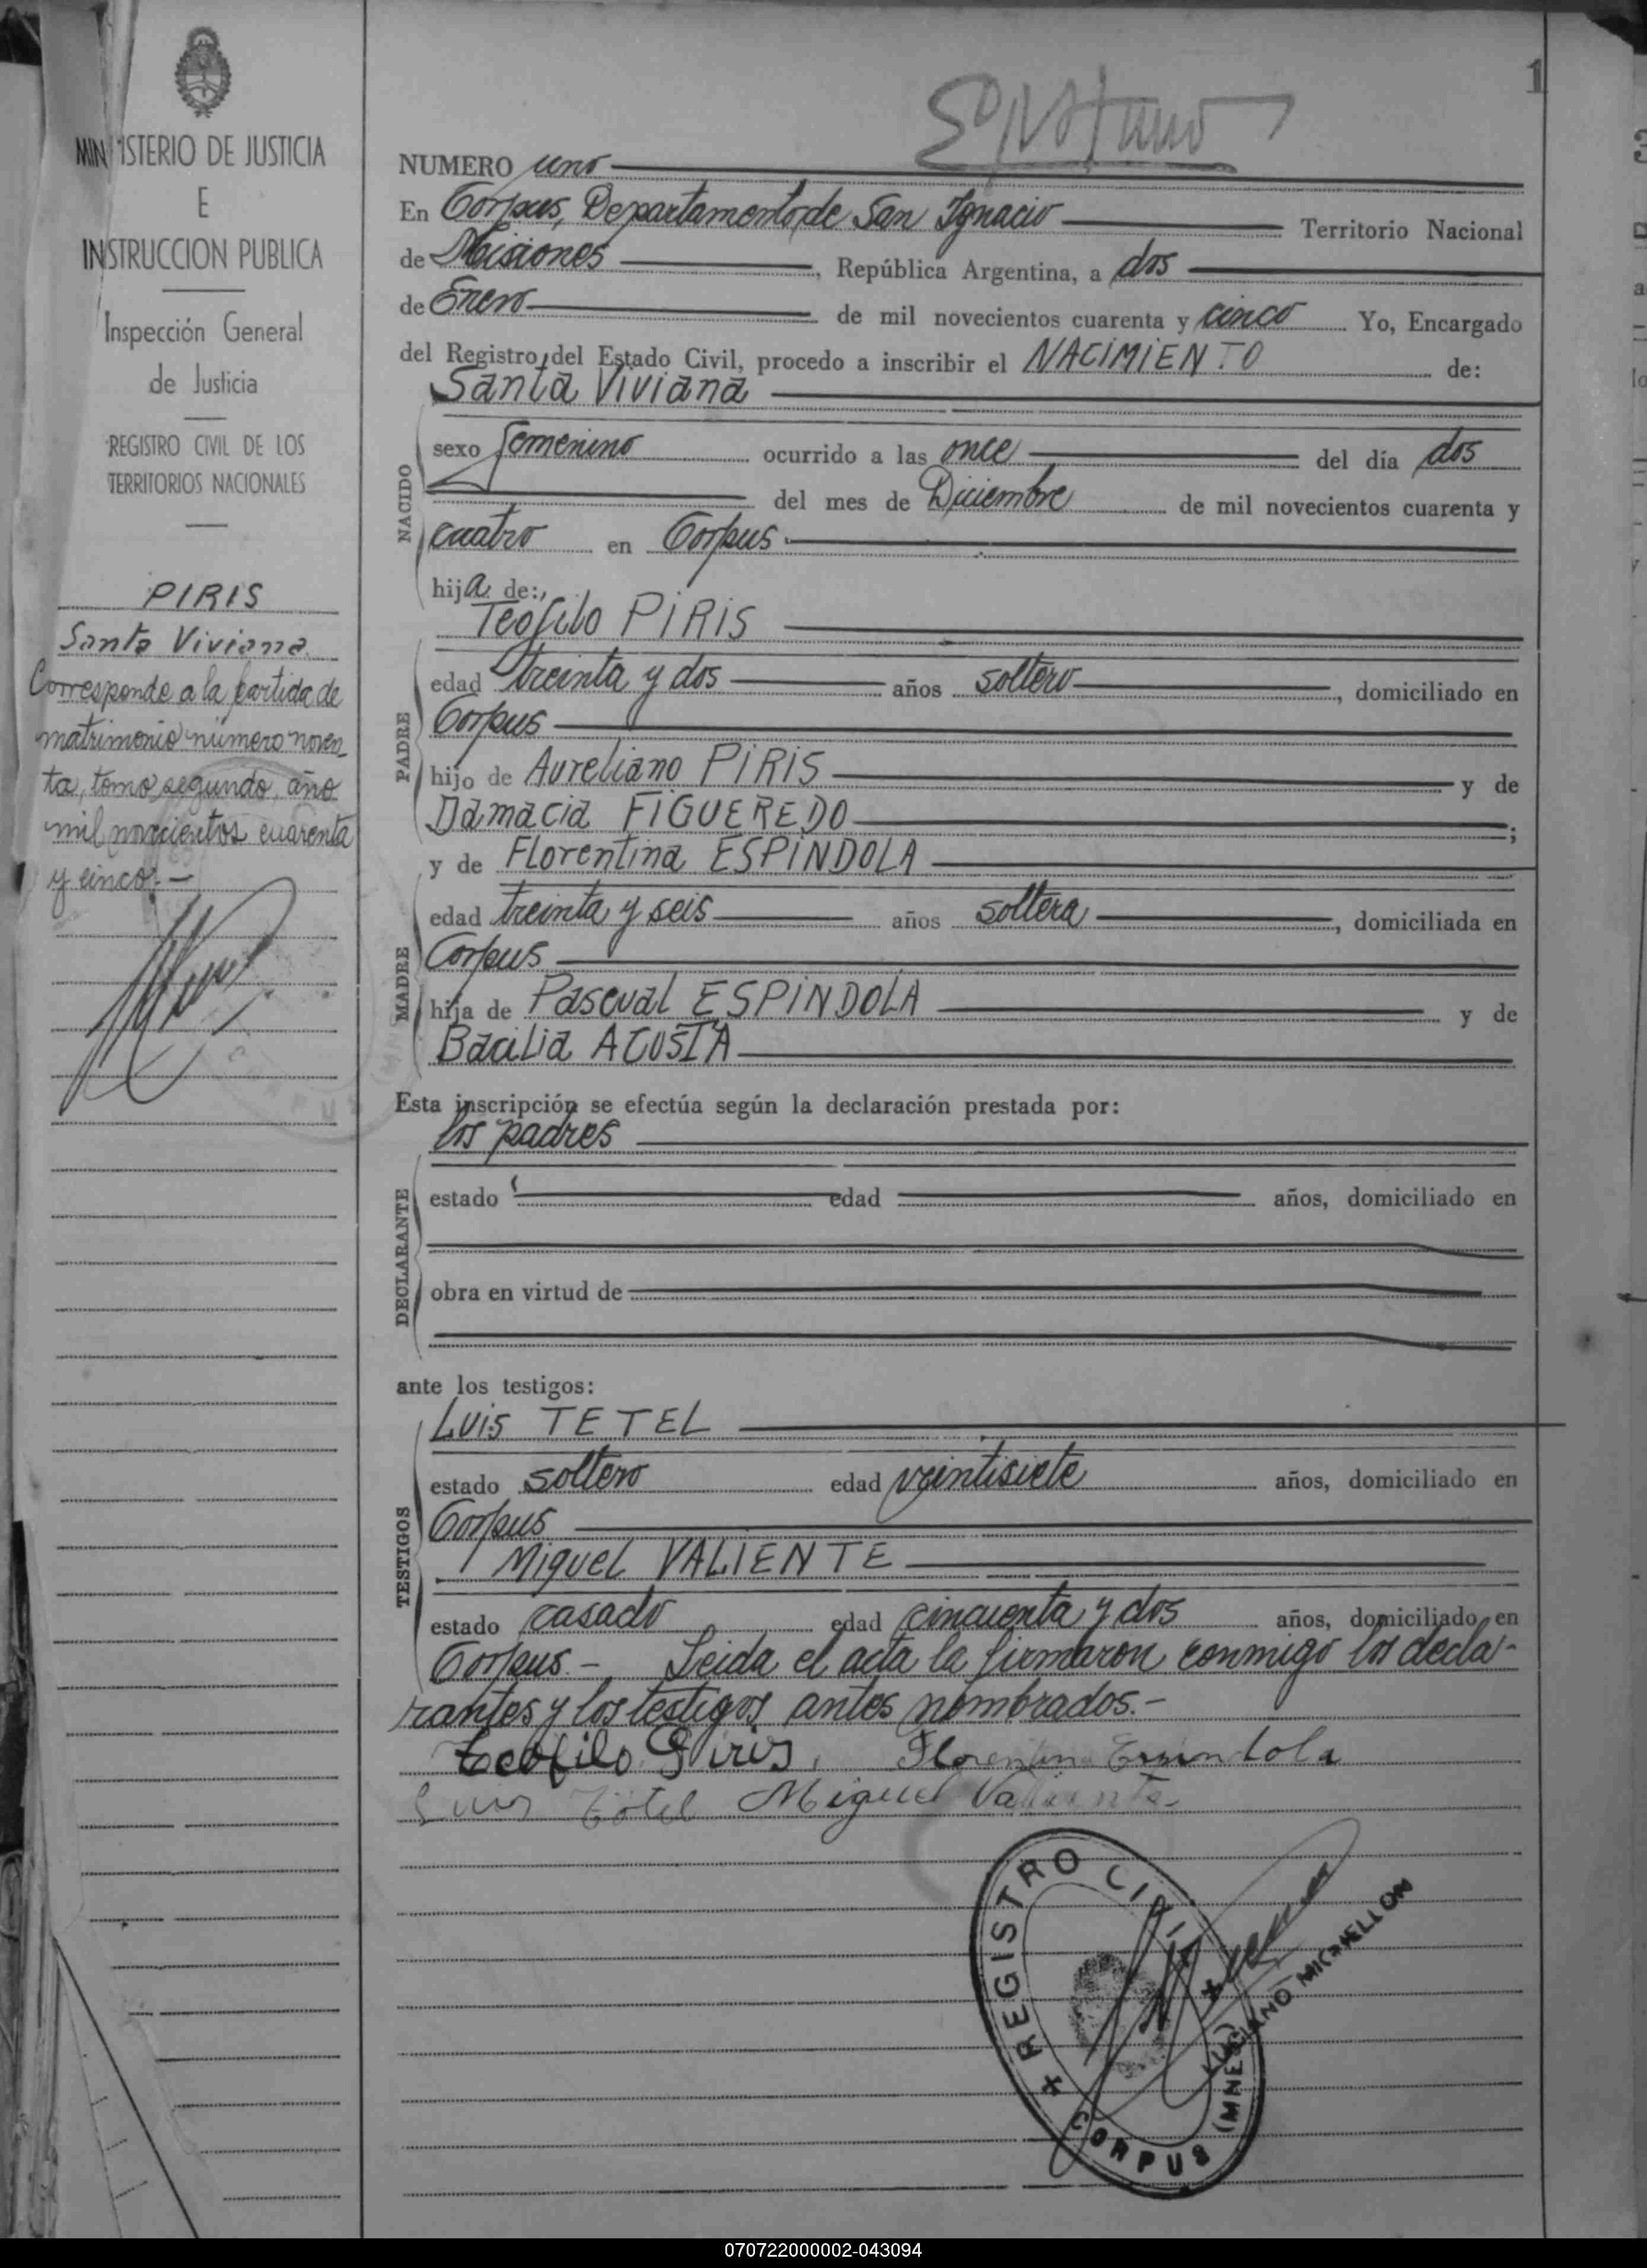 1
MINISTERIO DE JUSTICIA
E
INSTRUCCION PUBLICA
Inspección General
de Justicia
REGISTRO CIVIL DE LOS
TERRITORIOS NACIONALES
PIRIS
Santa Viviana
Corresponde a la partida de
matrimonio número noven-
ta, tomo segundo, año
mil novecientos cuarenta
y cinco.-
NUMERO uno
En Corpus, Departamento de San Ignacio Territorio Nacional
de Misiones, República Argentina, a dos
de Enero de mil novecientos cuarenta y cinco Yo, Encargado
del Registro del Estado Civil, procedo a inscribir el NACIMIENTO de:
Santa Viviana
NACIDO
sexo femenino ocurrido a las once del día dos
del mes de Diciembre de mil novecientos cuarenta y
cuatro en Corpus
hija de:
Teofilo PIRIS
PADRE
edad treinta y dos años soltero, domiciliado en
Corpus
hijo de Aureliano PIRIS y de
Damacia FIGUEREDO;
y de Florentina ESPINDOLA
MADRE
edad treinta y seis años soltera, domiciliada en
Corpus
hija de Pascual ESPINDOLA y de
Bacilia ACOSTA
Esta inscripción se efectúa según la declaración prestada por:
los padres
DECLARANTE
estado edad años, domiciliado en
obra en virtud de
ante los testigos:
TESTIGOS
Luis TETEL
estado soltero edad veintisiete años, domiciliado en
Corpus
Miguel VALIENTE
estado casado edad cincuenta y dos años, domiciliado en
Corpus.- Leida el acta la firmaron conmigo los decla-
rantes y los testigos antes nombrados.-
Teofilo Piris, Florentina Espindola
Luis Tetel Miguel Valiente
REGISTRO CIVIL
CORPUS (MNES)
LUCIANO MICHELLON
070722000002-043094